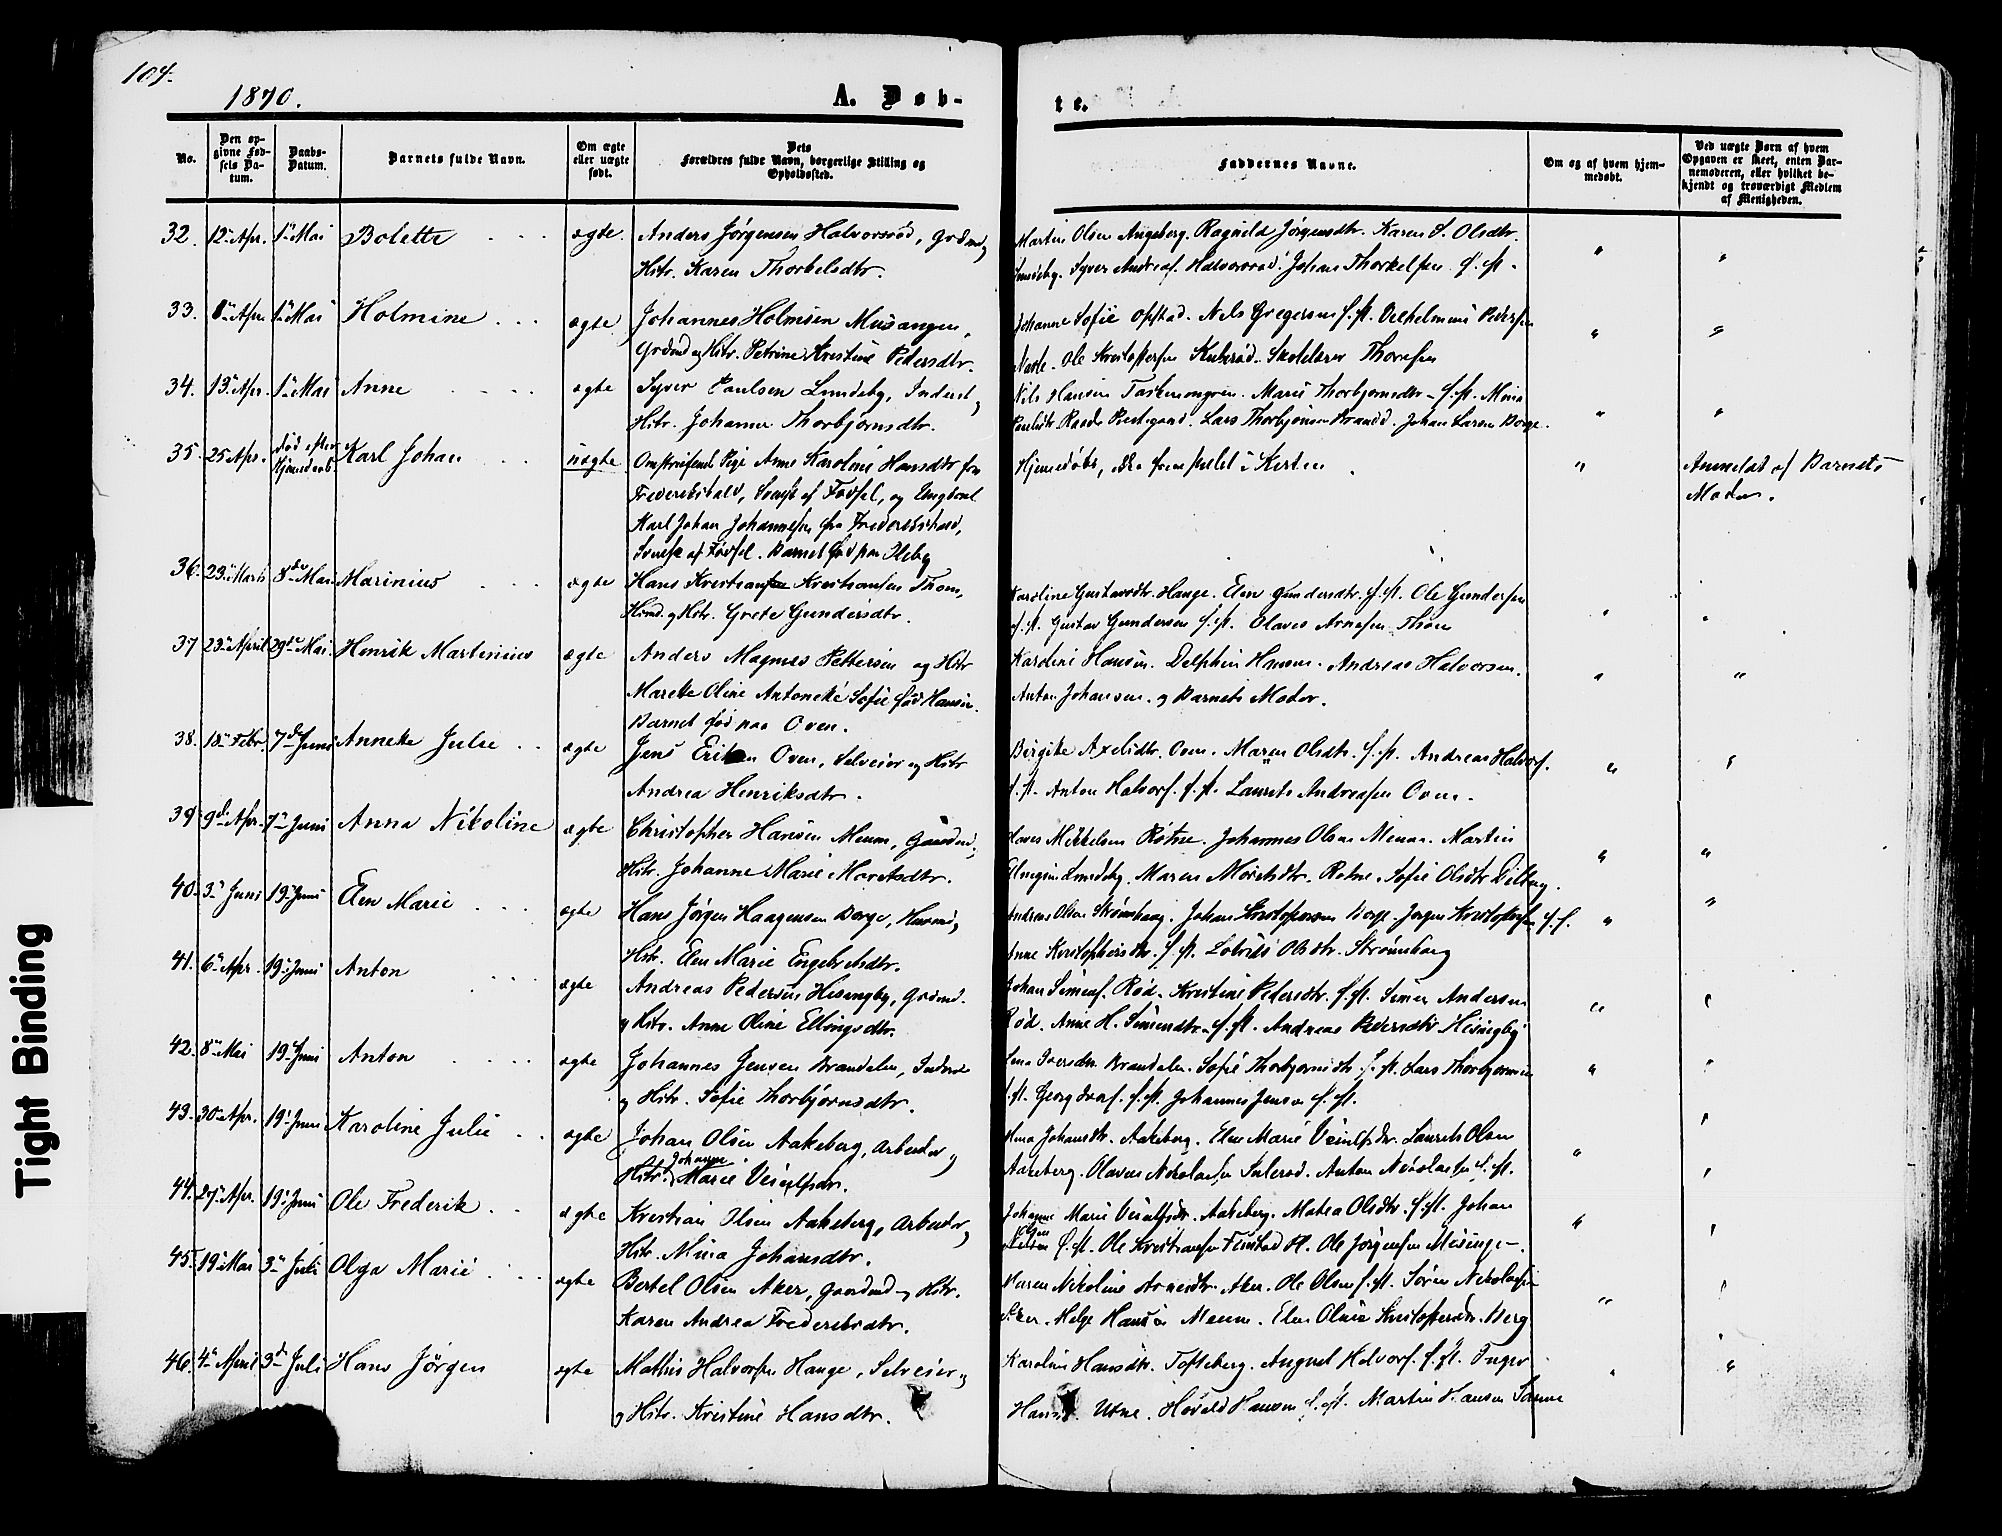 104.
1870.
A. Døb-
te.
No.
Den op-
givne Fød-
sels Da-
tum.
Daabs-
Datum.
Barnets fulde Navn.
Om ægte
eller uægte
født.
Dets
Forældres fulde Navn, borgerlige Stilling og
Opholdssted.
Faddernes Navne.
Om og af hvem hjem-
medøbt.
Ved uægte Børn af hvem
Opgaven er skeet, enten Bar-
nemoderen, eller hvilket be-
kjendt og troværdigt Medlem
af Menigheden.
32. 12 Apr. 1 Mai Bolette ægte. Anders Jørgensen Halvorsrød, Grdmd og
Hstr. Karen Thorkelsdtr.
Martin Olsen Angeberg. Ragnild Jørgensdtr. Karen S. Olsdtr.
Syver Andreas. Halvorsrød. Johan Thorkelsen s. st.
33. 8 Apr. 1 Mai Holmine ægte Johannes Holmsen Missangen,
Grdmd og Hstr. Petrine Kristine Pedersdtr.
Johanne Sofie Opstad. Nils Gregersen s. st. Vilhelmine Pedersen
Ole Kristoffersen Skolelærer Thoresen
34. 13 Apr. 1 Mai Anne ægte Syver Paulsen Lundeby, Inderst og
Hstr. Johanne Thorbjørnsdtr.
Nils Hansen Maria Thorbjørnsdtr s. st. Mina
Paulsdtr. Raade Prestegaard. Lars Thorbjønsen Johan Larsen Borge.
35. 25 Apr. død efter
Hjemedaab Karl Johan uægte Omstreifende Pige Anne Karoline Hansdtr fra
Frederikshald, Svensk af Fødsel, og Ungkarl
Karl Johan Johannesen fra Frederikshald,
Svensk af Fødsel. Barnet fød paa Oleby
Hjemedøbt, ikke fremstillet i Kirken
Anmeldt af Barnets
Moder.
36. 23 Marts 8de Mai Marinius ægte Hans Kristiansen Kristiansen Thom,
Hmd. og Hstr. Grete Gundersdtr.
Karoline Gustavsdtr. Hauge. Elen Gundersdtr. s. st. Ole Gundersen
s. st. Gustav Gundersen s. st. Olaves Arnesen Thom
37 23 April 29de Mai. Henrik Martinius ægte Anders Magnus Pettersen og Hstr
Mareke Oline Antoneke Sofie fød Hansen.
Barnet fød paa Oven.
Karoline Hansen. Delphin Hansen. Andreas Halvorsen.
Anton Johansen. og Barnets Moder.
38. 18 Febr. 7de Juni Anneke Julie ægte Jens Eriksen Oven, Selveier og Hstr
Andrea Henriksdtr.
Birgite Axelsdtr. Oven. Maren Olsdtr. s. st. Andreas Halvors.
s. st. Anton Halvors. s. st. Laurits Andreasen Oven.
39. 9de Apr. 7 Juni Anna Nikoline ægte Christopher Hansen Menum, Gaardmd.
Hstr. Johanne Marie Moretsdtr.
Olaves Mikkelsen Røtne. Johannes Olsen Menum. Martin
Lundeby. Maren Moretsdtr. Rotne. Sofie Olsdtr Dilling.
40. 3 Juni 19 Juni Elen Marie ægte Hans Jørgen Haagensen Borge, Husmd og
Hstr. Elen Marie Engebretsdtr.
Andreas Olsen Strømhaug. Johan Kristophersen Borge. Jørgen Kristoffersen s. s.
Anne Kristophersdtr. s. st. Lovise Olsdtr. Strømhaug
41. 6 Apr. 19 Juni Anton ægte Andreas Pedersen Hisingby, Grdmd.
og Hstr. Anne Oline Ellingsdtr.
Johan Simens. Rød. Kristine Pedersdtr. s. st. Simen Andersen
Rød. Anne H. Simensdtr. s. st. Andreas Pedersdtr Hisingby
42. 8 Mai 19 Juni Anton ægte Johannes Jensen Brandalen, Inderst
og Hstr. Sofie Thorbjørnsdtr.
Lena Iversdtr. Brandalen. Sofie Thorbjørnsdtr. s. st. Lars Thorbjørnsen
s. st. Georg s. st. Johannes Jensen s. st.
43. 30 Apr. 19 Juni Karoline Julie ægte Johan Olsen Aakeberg, Arbeider og
Hstr. Johanne Marie
Mina Johansdtr. Aakeberg. Elen Marie Laurits Olsen
Aakeberg. Olavus Nikolaisen Anton Nikolaisen s. st.
44. 27 Apr. 19 Juni Ole Frederik ægte Kristian Olsen Aakeberg, Arbeider og
Hstr. Mina Johansdtr.
Johanne Marie Aakeberg. Matea Olsdtr. s. st. Johan
Olsen s. st. Ole Kristiansen Ole Jørgensen Missinge.
45. 19 Mai 3 Juli Olga Marie ægte Bertel Olsen Aker, Gaardmd og Hstr.
Karen Andrea Frederiksdtr.
Maren Nikoline Arnesdtr. Aker. Ole Olsen s. st. Søren Nikolaisen
Aker. Helge Hansen Menum. Elen Oline Kristoffersdtr. Berg
46. 4 April 3de Juli Hans Jørgen ægte Mathis Halvorsen Hauge, Selveier og
og Hstr. Kristine Hansdtr.
Karoline Hansdtr. Tofteberg. August Halvors. s. st. Inger
Utne. Harald Hansen s. st. Martin Hansen
Tight Binding